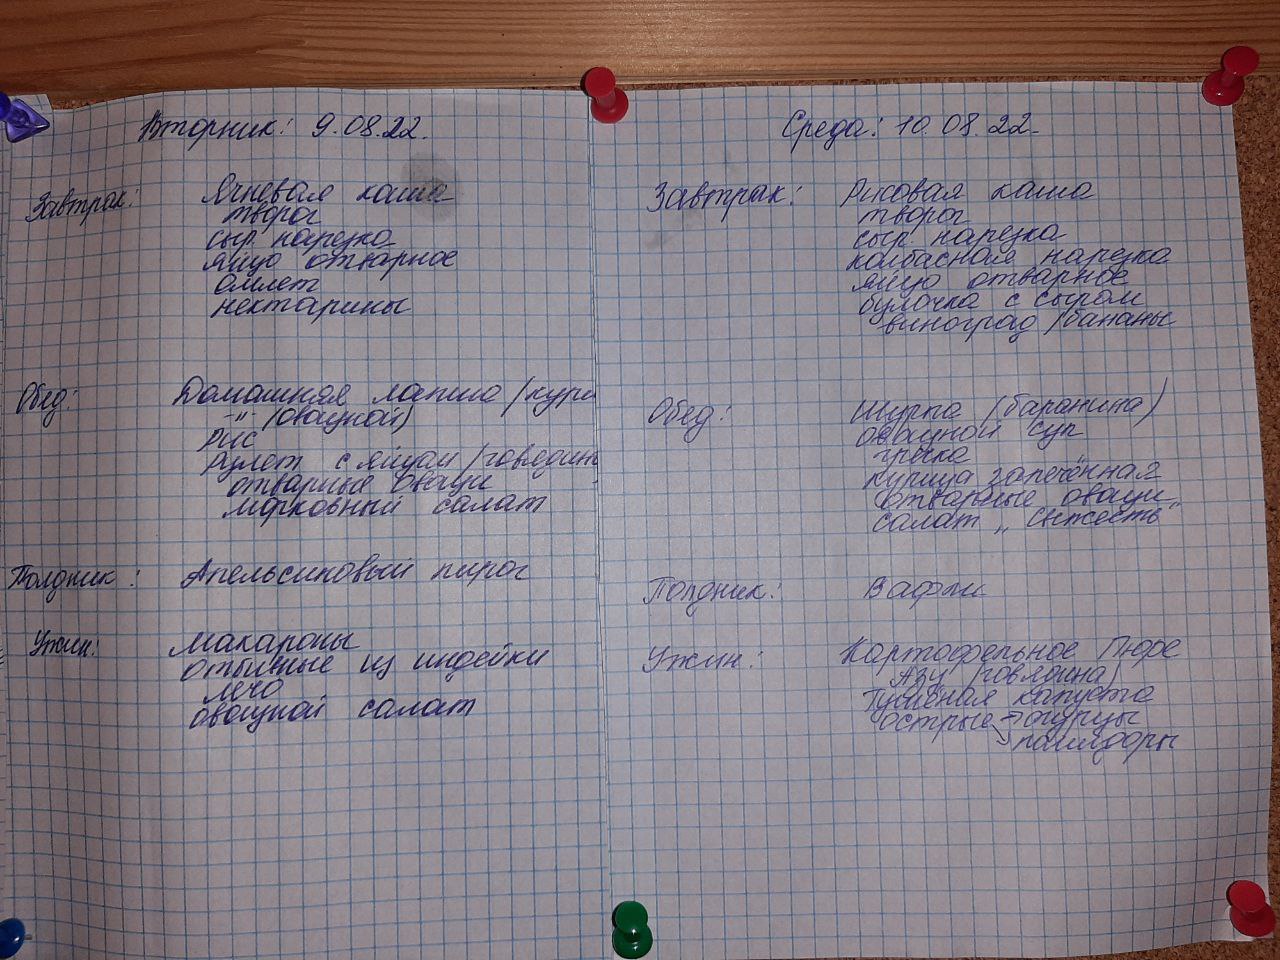 Вторник: 9.08.22.
Завтрак: Ячневая каша
творог
сыр. нарезка
яйцо отварное
омлет
нектарины
Обед: Домашняя лапша /кури
-"- (овощной)
рис
рулет с яйцом /говядин
отварные овощи
морковный салат
Полдник: Апельсиновый пирог
Ужин: Макароны
отбивные из индейки
лечо
овощной салат
Среда: 10.08.22.
Завтрак: Рисовая каша
творог
сыр. нарезка
колбасная нарезка
яйцо отварное
булочка с сыром
виноград /бананы
Обед: Шурпа (баранина)
овощной суп
гречка
курица запечённая
отварные овощи
салат „Свежесть"
Полдник: Вафли
Ужин: Картофельное Пюре
Азу (говядина)
Тушёная капуста
острые → огурцы
→ помидоры